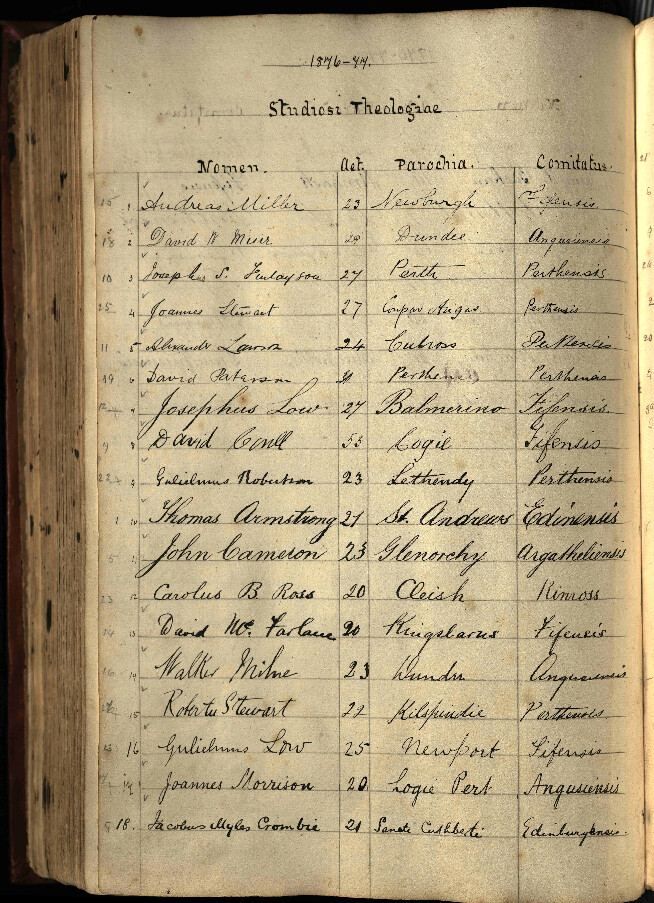 1876-77.
Studiosi Theologiae
Nomen. Aet. Parochia. Comitatus.
15 1 Andreas Miller 23 Newburgh Fifensis
18 2 David W Muir Dundee Angusiensis
10 3 Josephus S. Finlayson 27 Perth Perthensis
25 4 Joannes Stewart 27 Coupar Angus Perthensis
11 5 Alexander Lawson 24 Culross Perthensis
19 6 David Paterson Perthensis
7 Josephus Low 27 Balmerino Fifensis
9 8 David Coull 55 Logie Fifensis
9 Gulielmus Robertson 23 Lethendy Perthensis
1 10 Thomas Armstrong 21 St. Andrews Edinensis
5 11 John Cameron 23 Glenorchy Argatheliensis
23 12 Carolus B Ross 20 Cleish Kinross
14 13 David Mc Farlane 20 Kingsbarns Fifensis
16 14 Walker Milne 23 Dundee Angusiensis
15 Robertus Stewart 21 Kilspindie Perthensis
13 16 Gulielmus Low 25 Newport Fifensis
17 Joannes Morrison 20 Logie Pert Angusiensis
18. Jacobus Myles Crombie 21 Sancti Cuthberti Edinburgensis.